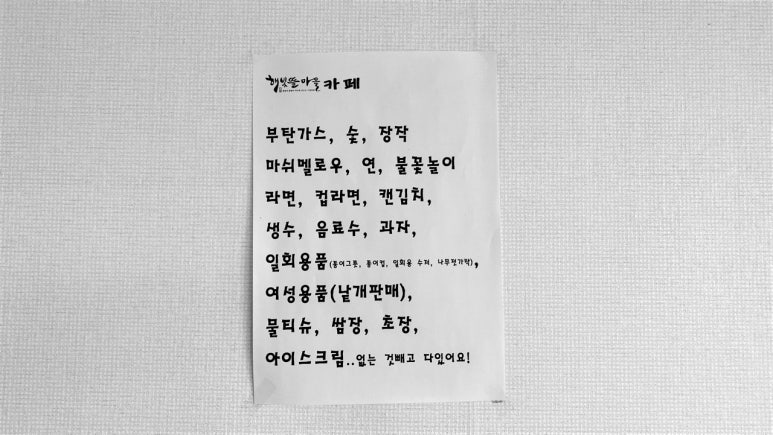 햇빛뜰마을 카페
부탄가스, 숯, 장작
마쉬멜로우, 연, 불꽃놀이
라면, 컵라면, 캔김치,
생수, 음료수, 과자,
일회용품(종이그릇, 종이컵, 일회용 수저, 나무젓가락),
여성용품(낱개판매),
물티슈, 쌈장, 초장,
아이스크림..없는 것빼고 다있어요!